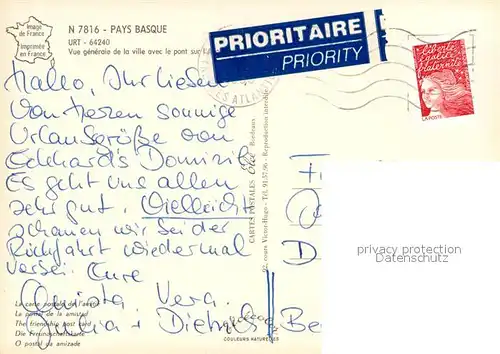 Image
de France
Imprimée
en France
N 7816 - PAYS BASQUE
URT - 64240
Vue générale de la ville avec le pont sur l'
PRIORITAIRE
PRIORITY
Liberté
égalité
fraternité
LA POSTE
Hallo, Ihr Lieben
Von Herzen sonnige
Urlaubsgrüße von
Eckhard's Domizil
Es geht uns allen
sehr gut. Vielleicht
schauen wir bei der
Rückfahrt wiedermal
vorbei. Eure
Vera.
Dietmar
CARTES POSTALES
Bordeaux
92, cours Victor-Hugo - Tél. 91.57.56 - Reproduction interdite
La carte postale de l'amitié
La postal de la amistad
The friendship post card
Die Freundschaftskarte
O postal da amizade
COULEURS NATURELLES
D
privacy protection
Datenschutz